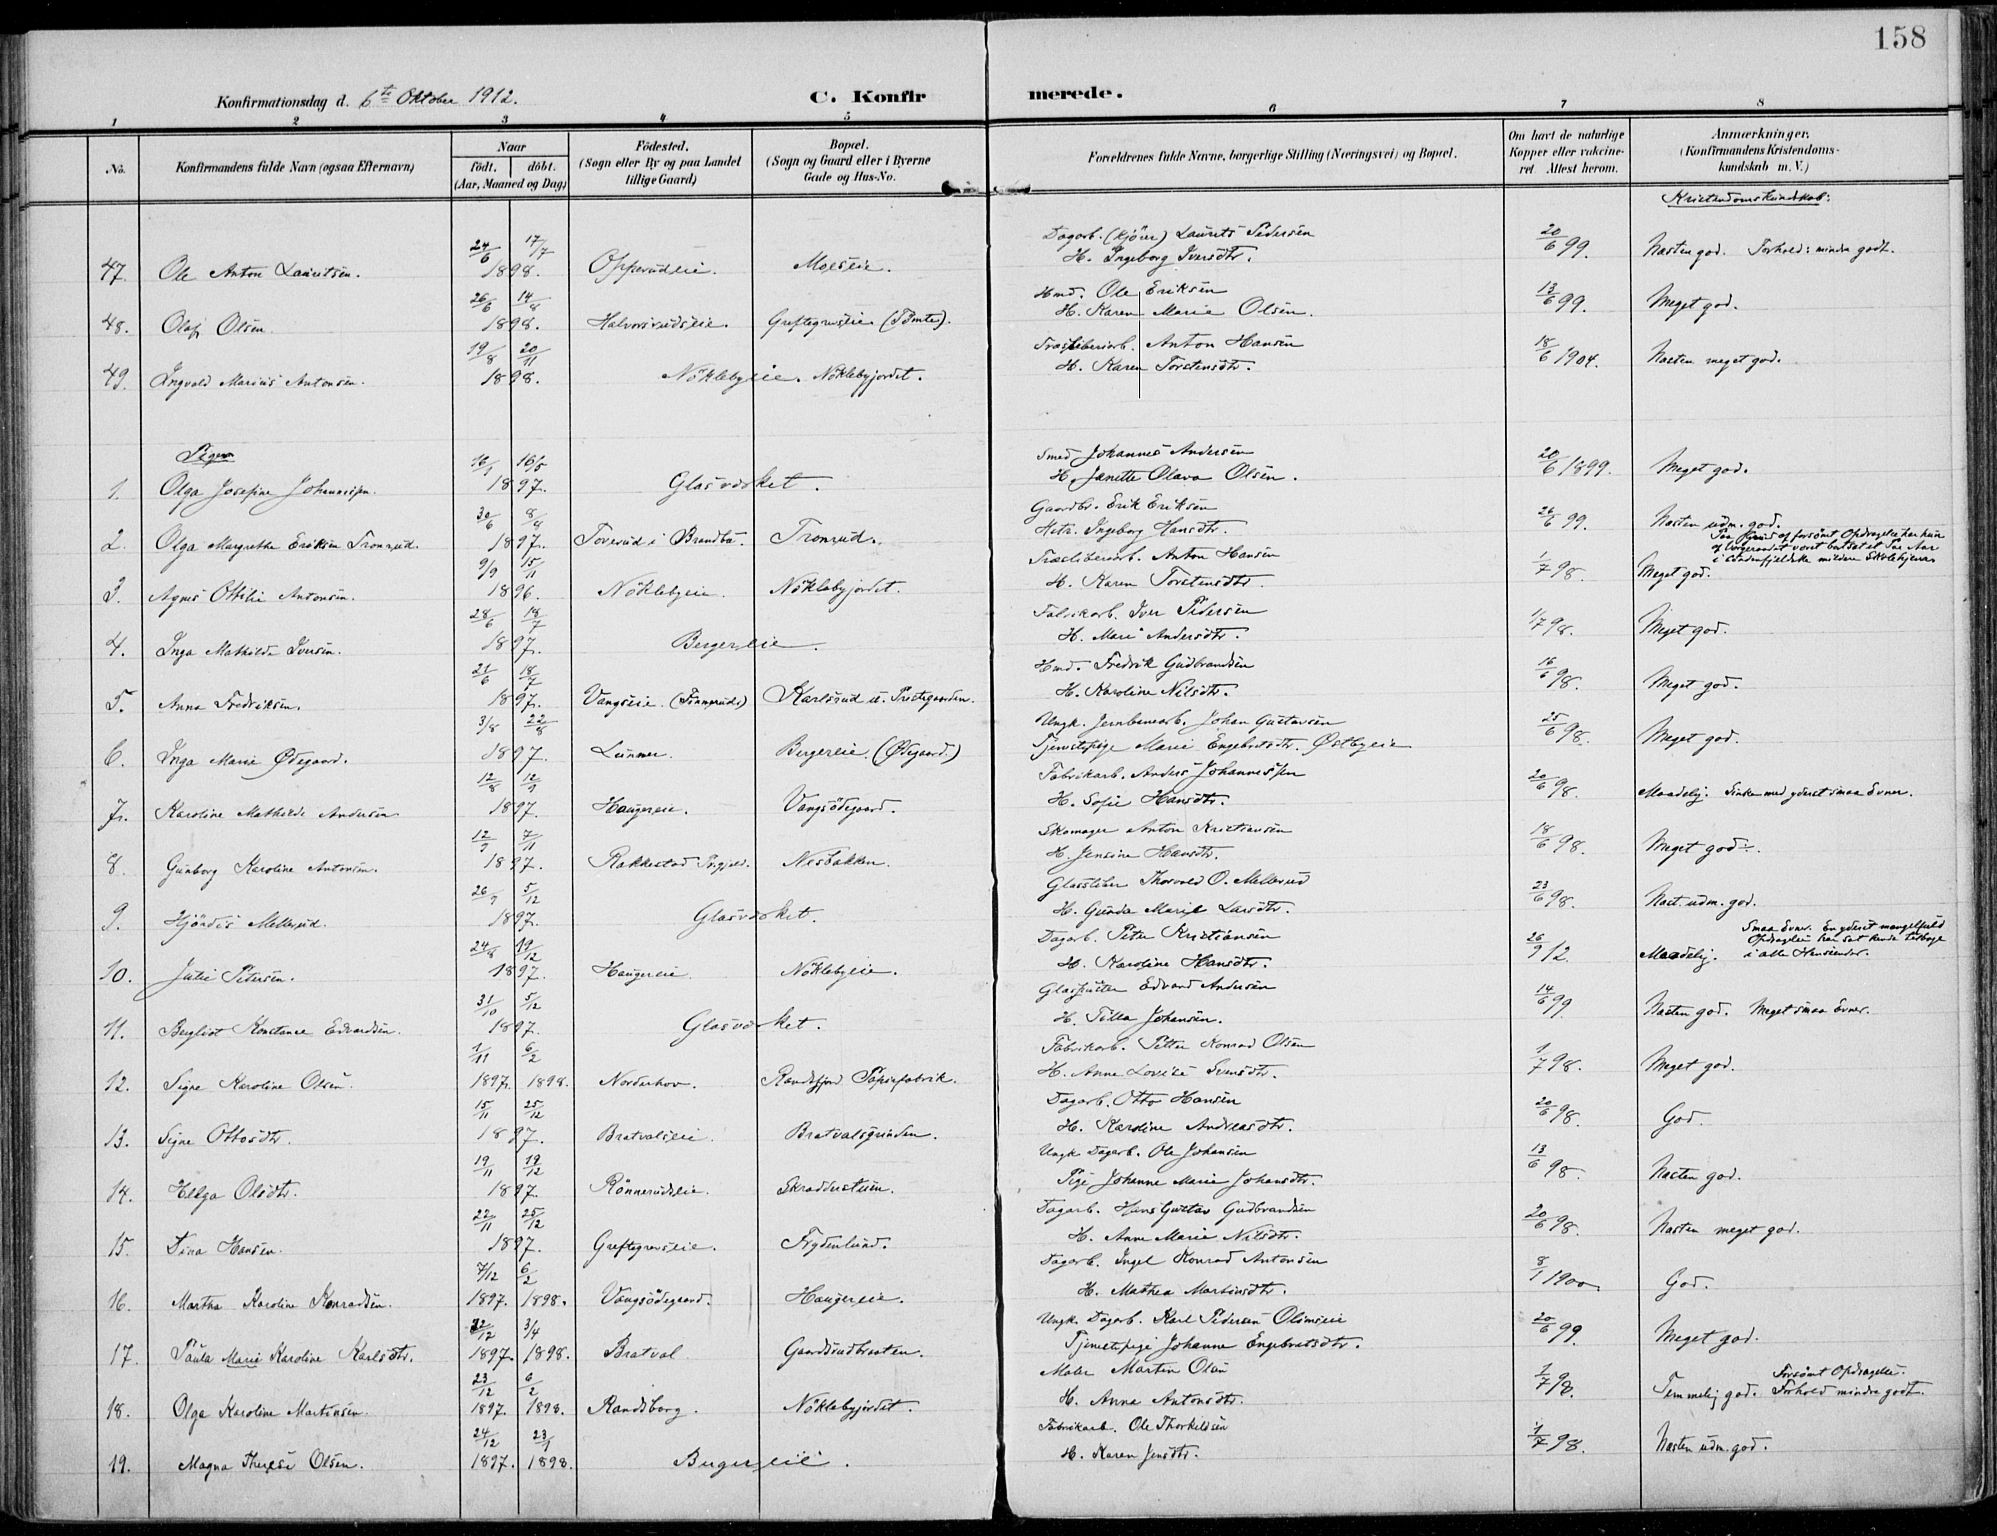 158
Konfirmationsdag d. 6te Oktober 1912. C. Konfirmerede.
1 2 3 4 5 6 7 8
No. Konfirmandens fulde Navn (ogsaa Efternavn) Naar født. døbt. (Aar, Maaned og Dag) Fødested. (Sogn eller By og paa Landet tillige Gaard) Bopæl. (Sogn og Gaard eller i Byerne Gade og Hus-No. Forældrenes fulde Navne, borgerlige Stilling (Næringsvei) og Bopæl. Om havt de naturlige Kopper eller vaccineret Attest herom. Anmærkninger. (Konfirmandens Kristendomskundskab m. V.)
Kristendomskundskab:
24/6 17/7 Dagarb. (kjører) Laurits Pedersen 20/6 99
47. Ole Anton Lauritsen. 1898. Opperudeie. Moeseie. H. Ingeborg Iversdtr. Næsten god. Forhold: mindre godt.
26/6 14/8 Hmd. Ole Eriksen 13/6 99
48. Olaf Olsen 1898. Halvorsrudseie. Greftegrevseie (Tomte). H. Karen Marie Olsen. Meget god.
19/8 20/11 Træsliberiarb. Anton Hansen 18/6 1904
49. Ingvald Marius Antonsen. 1898. Nøklebyeie. Nøklebyjordet. H. Karen Torstensdtr. Næsten meget god.
Piger
16/1 16/5 Smed Johannes Andersen 20/6 1899
1. Olga Josefine Johannesen. 1897. Glasværket. H. Janette Olava Olsen. Meget god.
30/6 8/8 Gaardbr. Erik Eriksen 26/6 99 Næsten udm. god.
2. Olga Margrethe Eriksen Tronrud. 1897. Toverud i Brandbu. Tronrud. Hstr. Ingeborg Hansdtr. Paa Grund af forsømt Opdragelse har hun
9/9 15/11 Træsliberiarb. Anton Hansen 1/7 98
3. Agnes Ottilie Antonsen. 1896. Nøklebyeie. Nøklebyjordet. H. Karen Torstensdtr. Meget god.
28/6 18/7 Fabrikarb. Iver Pedersen 1/7 98
4. Inga Mathilde Iversen. 1897. Bergereie. H. Mari Andersdtr. Meget god.
21/6 18/7 Hmd. Fredrik Gudbrandsen 16/6 98
5. Anna Fredriksen. 1897. Vangseie. Karlsrud u. Prestegaarden. H. Karoline Nilsdtr. Meget god.
3/8 22/8 Ungk. Jernbanearb. Johan Gustavsen 25/6 98
6. Inga Marie Ødegaard. 1897. Lunner. Bergereie. (Ødegaard.) Tjenestepige Marie Engebretsdtr. Østbyeie Meget god.
12/8 12/9 Fabrikarb. Anders Johannessen 20/6 98
7. Karoline Mathilde Andersen 1897. Haugereie. Vangsødegaard. H. Sofie Hansdtr. Maadelig. Sinke med yderst smaa Evner.
12/9 7/11 Skomager Anton Kristiansen 18/6 98
8. Gunborg Karoline Antonsen. 1897. Rakkestad Prgjeld. Nesbakken. H. Jensine Hansdtr. Meget god.
26/9 5/12 Glassliber Thorvald O. Mellerud 23/6 98
9. Hjørdis Mellerud. 1897. Glasværket. H. Gunda Marie Larsdtr. Næst. udm. god.
24/8 19/12 Dagarb. Peter Kristiansen 26/9 12 Smaa Evner. En yderst mangelfuld
10. Julie Petersen. 1897. Haugereie Nøklebyeie. H. Karoline Hansdtr. Maadelig. Opdragelse har sat hende tilbage i alle Henseender.
31/10 5/12 Glaspuster Edvard Andersen 14/6 99
11. Bergliot Konstance Edvardsen. 1897. Glasværket. H. Tilla Johansen. Næsten god. Meget smaa Evner.
1/11 6/2 Fabrikarb. Petter Konrad Olsen 1/7 98
12. Signe Karoline Olsen. 1897. 1898. Norderhov. Randsfjord Papirfabrik. H. Anne Lovise Svensdtr. Meget god.
15/11 25/12 Dagarb. Otto Hansen 20/6 98
13. Signe Ottosdtr. 1897. Bratvalseie. Bratvalsgrinden. H. Karoline Andreasdtr. God.
19/11 19/12 Ungk. Dagarb. Ole Johansen 13/6 98
14. Helga Olsdtr. 1897. Rønnerudseie. Skradderstuen. Pige Johanne Marie Johansdtr. Næsten god.
22/11 25/12 Dagarb. Hans Gustav Gudbrandsen 20/6 98
15. Dina Hansen. 1897. Greftegrevseie. Frydenlund. H. Anne Marie Nilsdtr. Næsten meget god.
7/12 6/2 Dagarb. Ingel Konrad Antonsen 8/1 1900
16. Martha Karoline Konradsen. 1897. 1898. Vangsødegaard. Haugereie. H. Mathea Martinsdtr. God.
22/12 3/4 Ungk. Dagarb. Karl Pedersen Olimseie 20/6 99
17. Paula Marie Karoline Karlsdtr. 1897. 1898. Bratval Gaardsrudbraaten. Tjenestepige Johanne Engebretsdtr. Meget god.
23/12 6/2 Maler Martin Olsen 1/7 98 Forsømt Opdragelse.
18. Olga Karoline Martinsen. 1897. 1898. Randsborg. Nøklebyjordet. H. Anna Antonsdtr. Temmelig god. Forhold mindre godt.
24/12 23/1 Fabrikarb. Ole Thorkildsen 1/7 98
19. Magna Therese Olsen. 1897. 1898. Bergereie. H. Karen Jensdtr. Næsten udm. god.